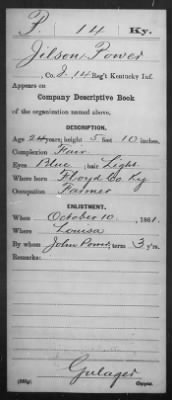 P. 14 Ky.
Jilson Power
, Co. I, 14 Reg't Kentucky Inf.
Appears on
Company Descriptive Book
of the organization named above.
DESCRIPTION.
Age 24 years; height 5 feet 10 inches.
Complexion Fair
Eyes Blue; hair Light
Where born Floyd Co Ky
Occupation Farmer
ENLISTMENT.
When October 10, 1861.
Where Louisa
By whom John Power; term 3 y'rs.
Remarks:
Gulager
Copyist.